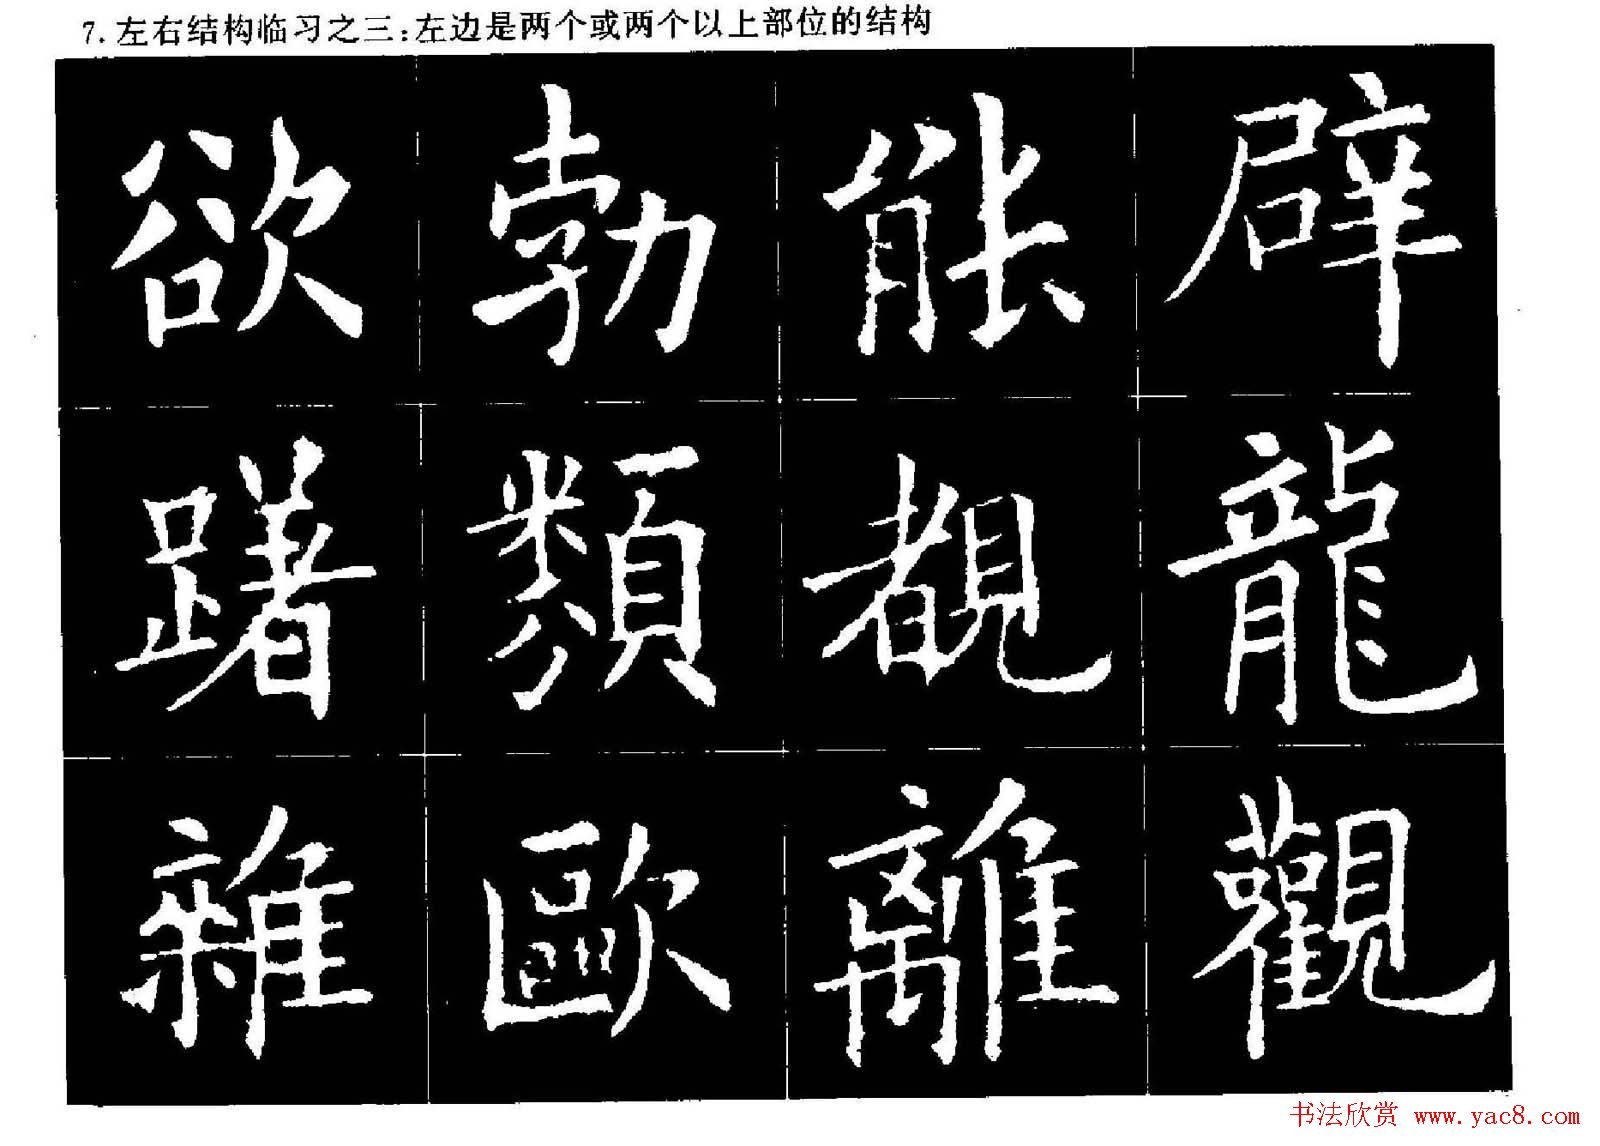 7. 左右结构临习之三:左边是两个或两个以上部位的结构
欲勃能辟
躇類覩龍
雜歐離觀
书法欣赏 www.yac8.com